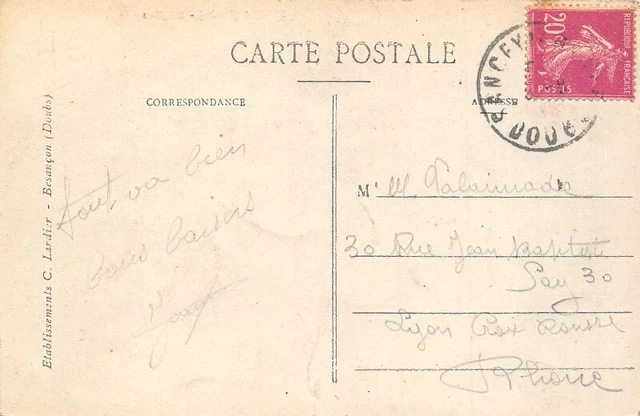 CARTE POSTALE
CORRESPONDANCE
ADRESSE
20c
REPUBLIQUE FRANÇAISE
POSTES
DOUBS
Etablissements C. Lardier - Besançon (Doubs)
Tout va bien
bons baisers
M
M.
30 Rue Jean Baptiste
Say 30
Lyon Croix Rousse
Rhone